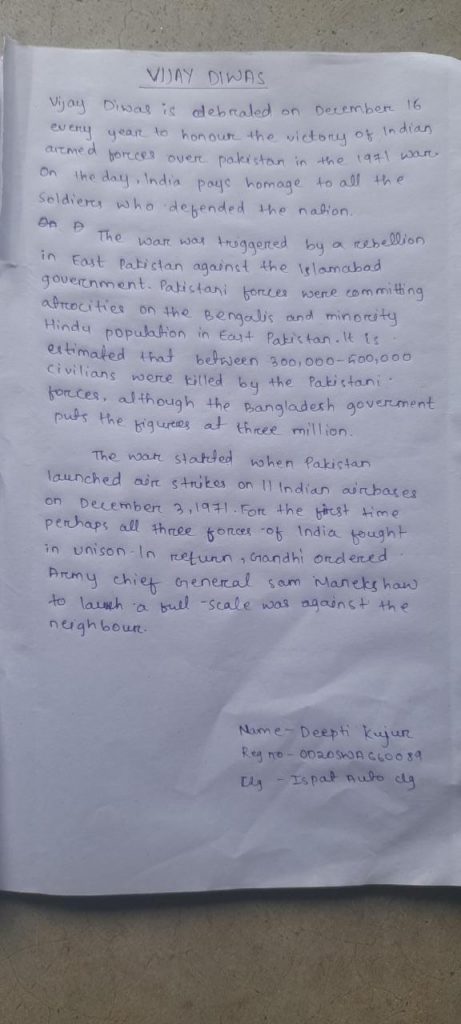 VIJAY DIWAS
Vijay Diwas is debraled on December 16
every year to honour the victory of Indian
armed forces over pakistan in the 1971 war.
On the day, India pays homage to all the
soldiers who defended the nation.
The war was triggered by a rebellion
in East Pakistan against the Islamabad
government. Pakistani forces were committing
atrocities on the Bengalis and minority
Hindu population in East Pakistan. It is
estimated that between 300,000-500,000
civilians were killed by the Pakistani
forces, although the Bangladesh goverment
puts the figures at three million.
The war started when Pakistan
launched air strikes on 11 Indian airbases
on December 3, 1971. For the first time
perhaps all three forces of India fought
in unison. In return, Gandhi ordered
Army chief General Sam Manekshaw
to launch a full-scale was against the
neighbour.
Name - Deepti Kujur
Reg no -
Clg - Ispat Auto clg